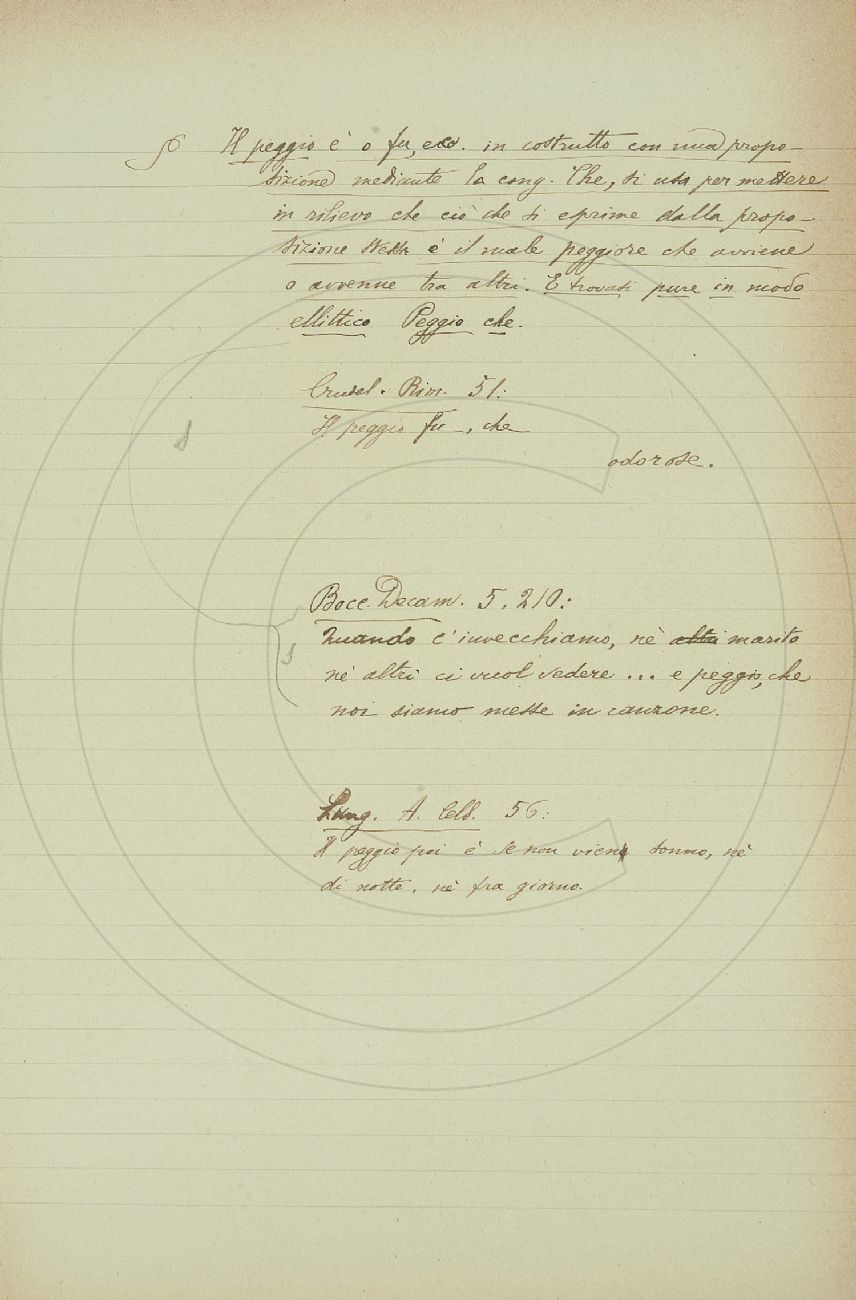 § Il peggio è o fu, ecc. in costrutto con una propo-
sizione mediante la cong. Che, si usa per mettere
in rilievo che ciò che si esprime dalla propo-
sizione stessa è il male peggiore che avviene
o avvenne tra altri. E trovasi pure in modo
ellittico Peggio che.
Crudel. Rim. 51:
Il peggio fu, che
odorose.
Bocc. Decam. 5, 210:
Quando c'invecchiamo, nè altri marito
nè altri ci vuol vedere ... e peggio, che
noi siamo messe in canzone.
A. Cell. 56:
Il peggio poi è se non vien sonno, nè
di notte, nè fra giorno.